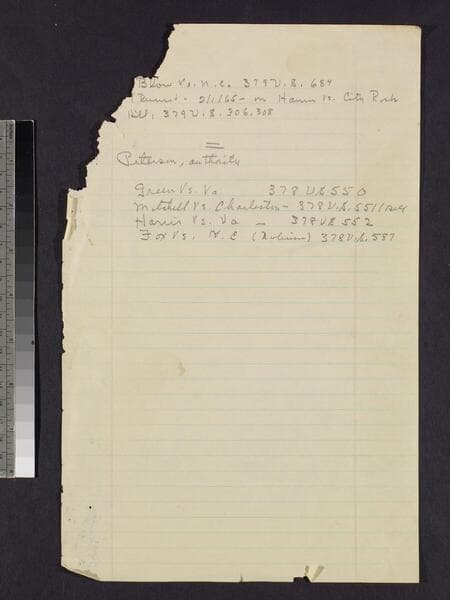 Blow Vs. N.C. 379 U.S. 684
2/1/65 - in Hamm vs. City Rock
Hill, 379 U.S. 306, 308
=
Peterson, authority
Green Vs. Va 378 U.S 550
Mitchell Vs. Charleston - 378 U.S. 551 (1964
Harris Vs. Va - 378 U.S. 552
Fox Vs. N.C 378 U.S. 587